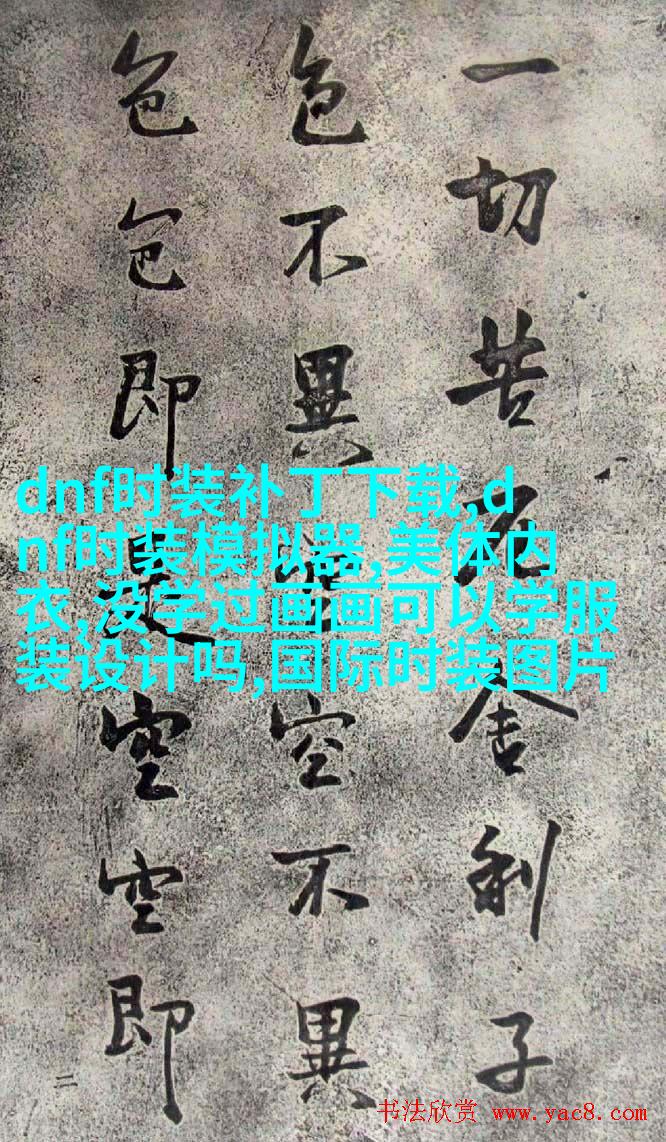 一切苦厄舍利子
色不異空空不異
色色即是空空即
二
dnf时装补丁下载,d
nf时装模拟器,美体内
衣,没学过画画可以学服
装设计吗,国际时装图片
书法欣赏 www.yac8.com